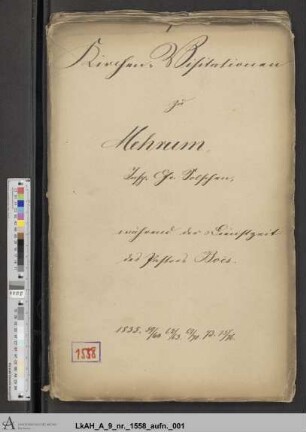 Kirchen-Visitationen
zu
Mehrum,
Insp. Gr. Solschen,
während der Dienstzeit
des Pastors
1858.
1558
LkAH_A_9_nr._1558_aufn._001